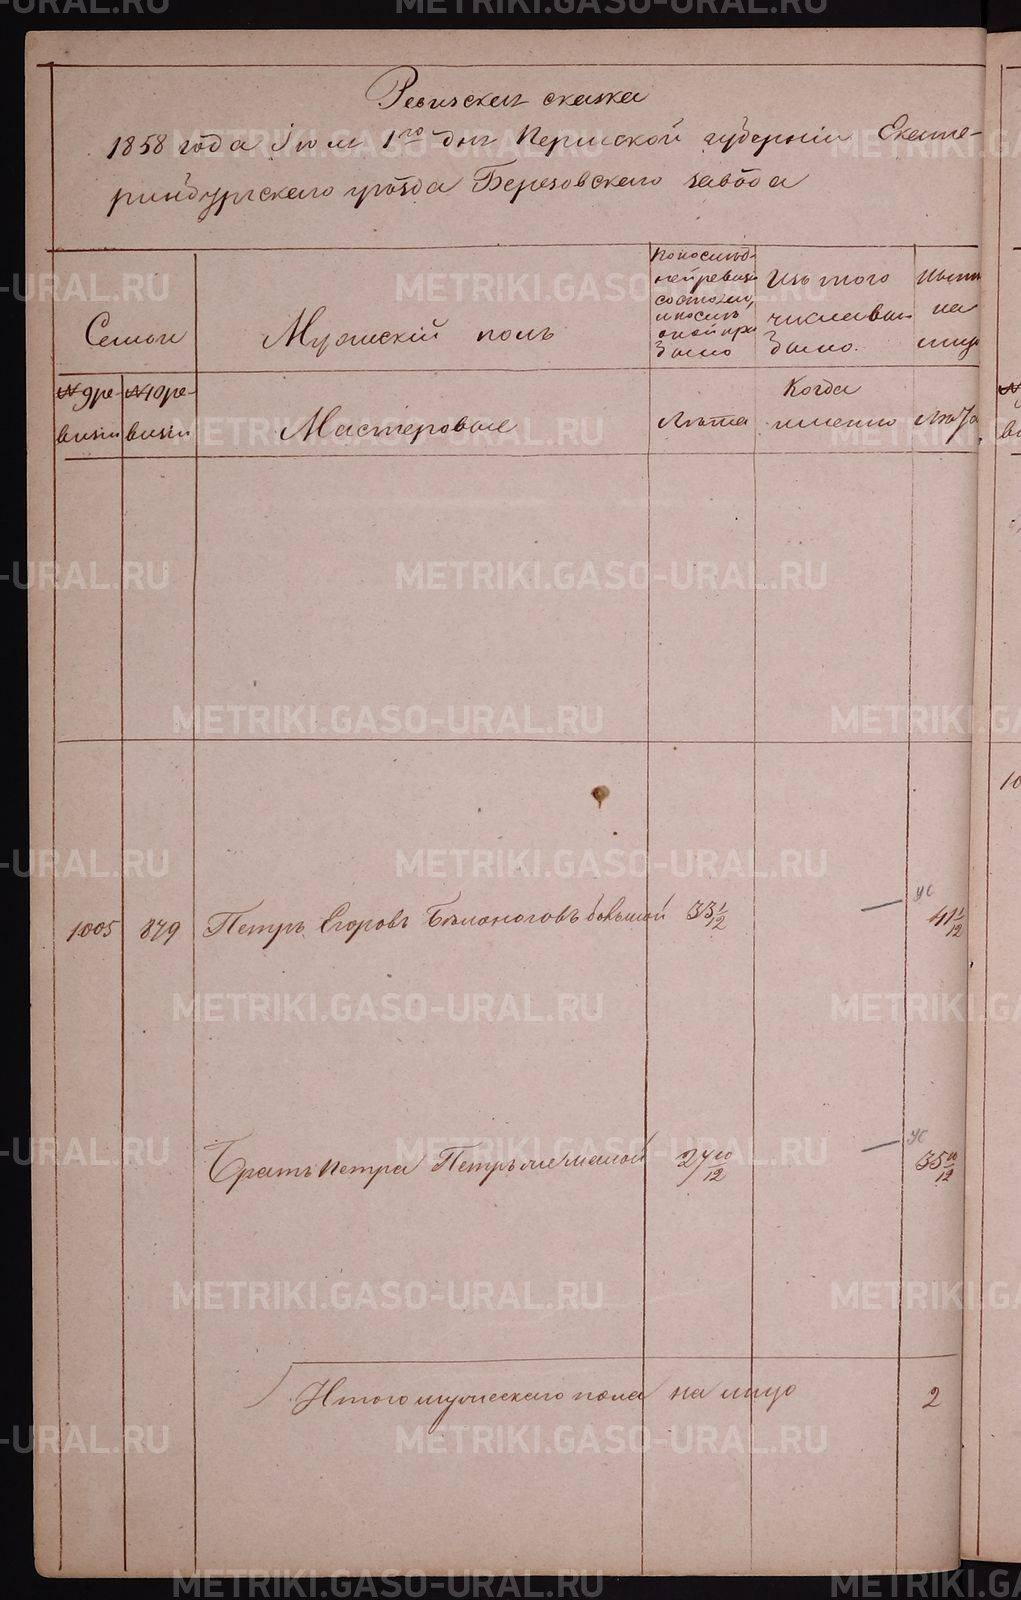 Ревизская сказка
1858 года Июля 1го дня Пермской губернiи Екате-
ринбургского уѣзда Березовского завода
Семьи
Мужскiй полъ
По послѣд-
ней ревизiи
состояло,
и послѣ
оной при
было
Изъ того
числа вы
было.
Нынѣ
на
лицо
№ 9 ре-
визiи
№ 10 ре-
визiи
Мастеровые
Лѣта
Когда
именно
Лѣта
1005 879 Петръ Егоровъ Бѣлоноговъ большой 33 1/12 — 41 1/12
Братъ Петра Петръ же малой 27 10/12 — 35 10/12
Итого мужескаго пола на лицо 2
METRIKI.GASO-URAL.RU